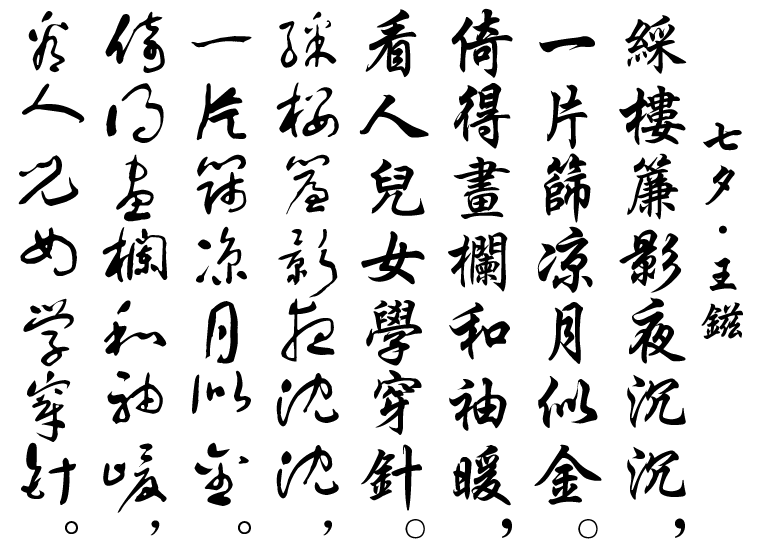 七夕·王鎡
綵樓簾影夜沉沉，
一片篩凉月似金。
倚得畫欄和袖暖，
看人兒女學穿針。
綵楼簾影夜沈沈，
一片篩凉月似金。
倚得画欄和袖暖，
看人児女学穿针。